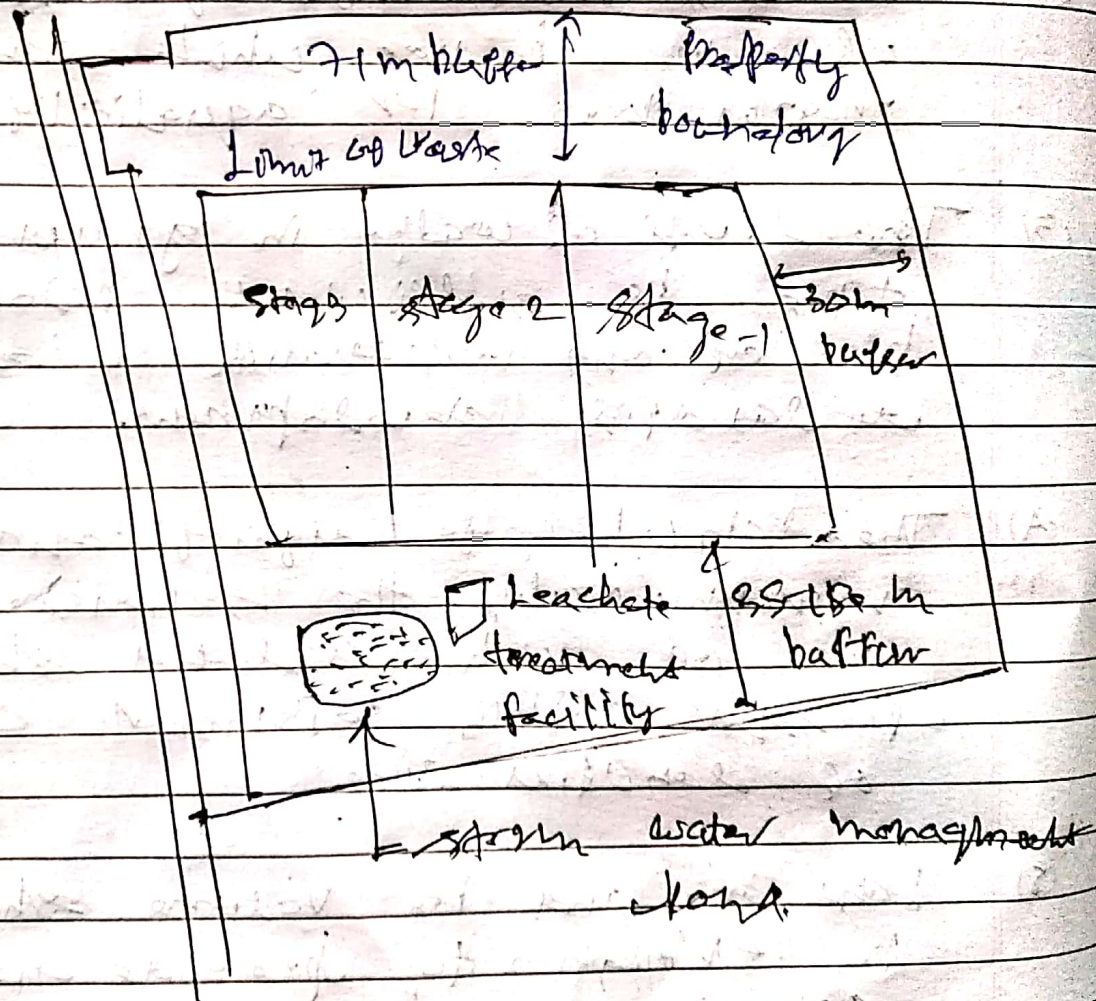 71m buffer
Property
boundary
Limit of Waste
Stag3
stage 2
stage-1
30m
buffer
Leachate
treatment
facility
m
buffer
storm water managment